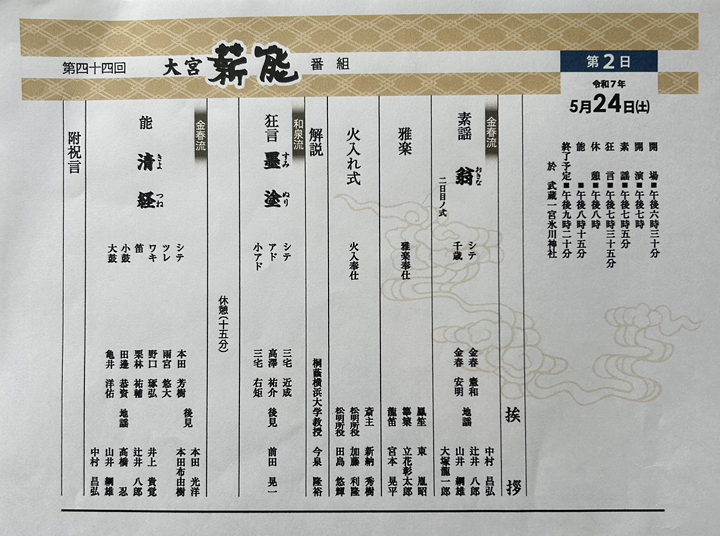 第四十四回 大宮薪能 番組
第2日
令和7年
5月24日(土)
開場■午後六時三十分
開演■午後七時
素謡■午後七時五分
狂言■午後七時三十五分
休憩■午後八時
能■午後八時十五分
終了予定■午後九時二十分
於 武蔵一宮氷川神社
挨拶
金春流
素謡 翁 おきな
二日目ノ式
シテ 金春 憲和
千歳 金春 安明
地謡
中村 昌弘
辻井 八郎
山井 綱雄
大塚龍一郎
雅楽
雅楽奉仕
鳳笙 東 胤昭
篳篥 立花彰太郎
龍笛 宮本 晃平
火入れ式
火入奉仕
斎主 新納 秀樹
松明所役 加藤 利隆
松明所役 田島 悠輝
解説
桐蔭横浜大学教授 今泉 隆裕
和泉流
狂言 墨塗 すみ ぬり
シテ 三宅 近成
アド 高澤 祐介
小アド 三宅 右矩
後見 前田 晃一
休憩(十五分)
金春流
能 清経 きよ つね
シテ 本田 芳樹
ツレ 雨宮 悠大
ワキ 野口 琢弘
笛 栗林 祐輔
小鼓 田邊 恭資
大鼓 亀井 洋佑
後見
本田 光洋
本田布由樹
地謡
井上 貴覚
辻井 八郎
高橋 忍
山井 綱雄
中村 昌弘
附祝言